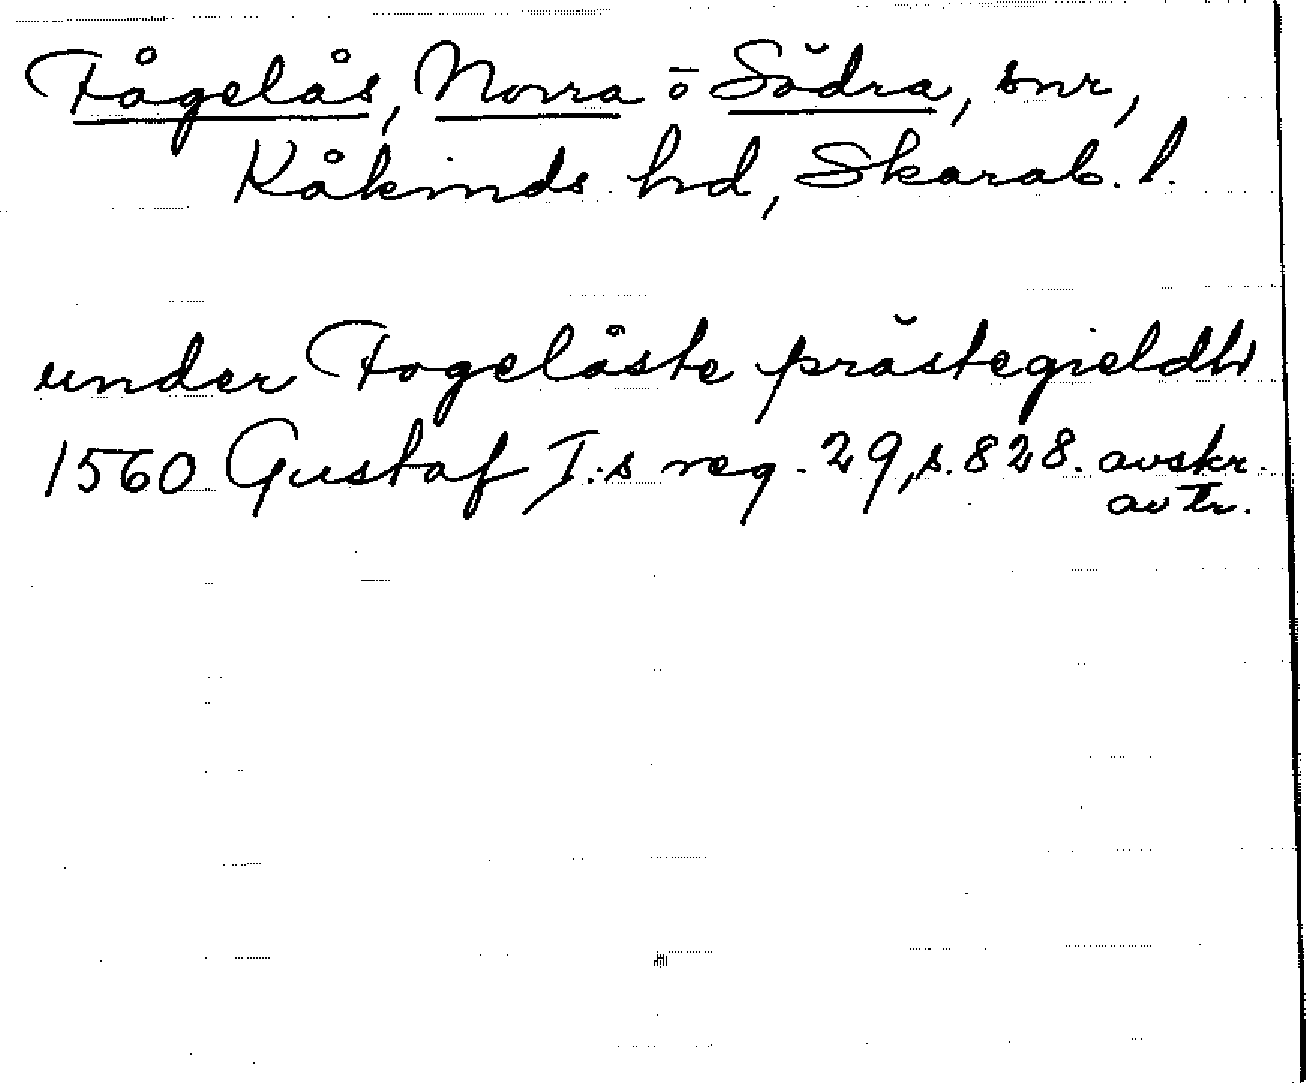 Fågelås, Norra o Södra, snr,
Kåkinds hd, Skarab. l.
under Fogelåste prästegieldh
1560 Gustaf I:s reg. 29, s. 828. avskr.
av tr.